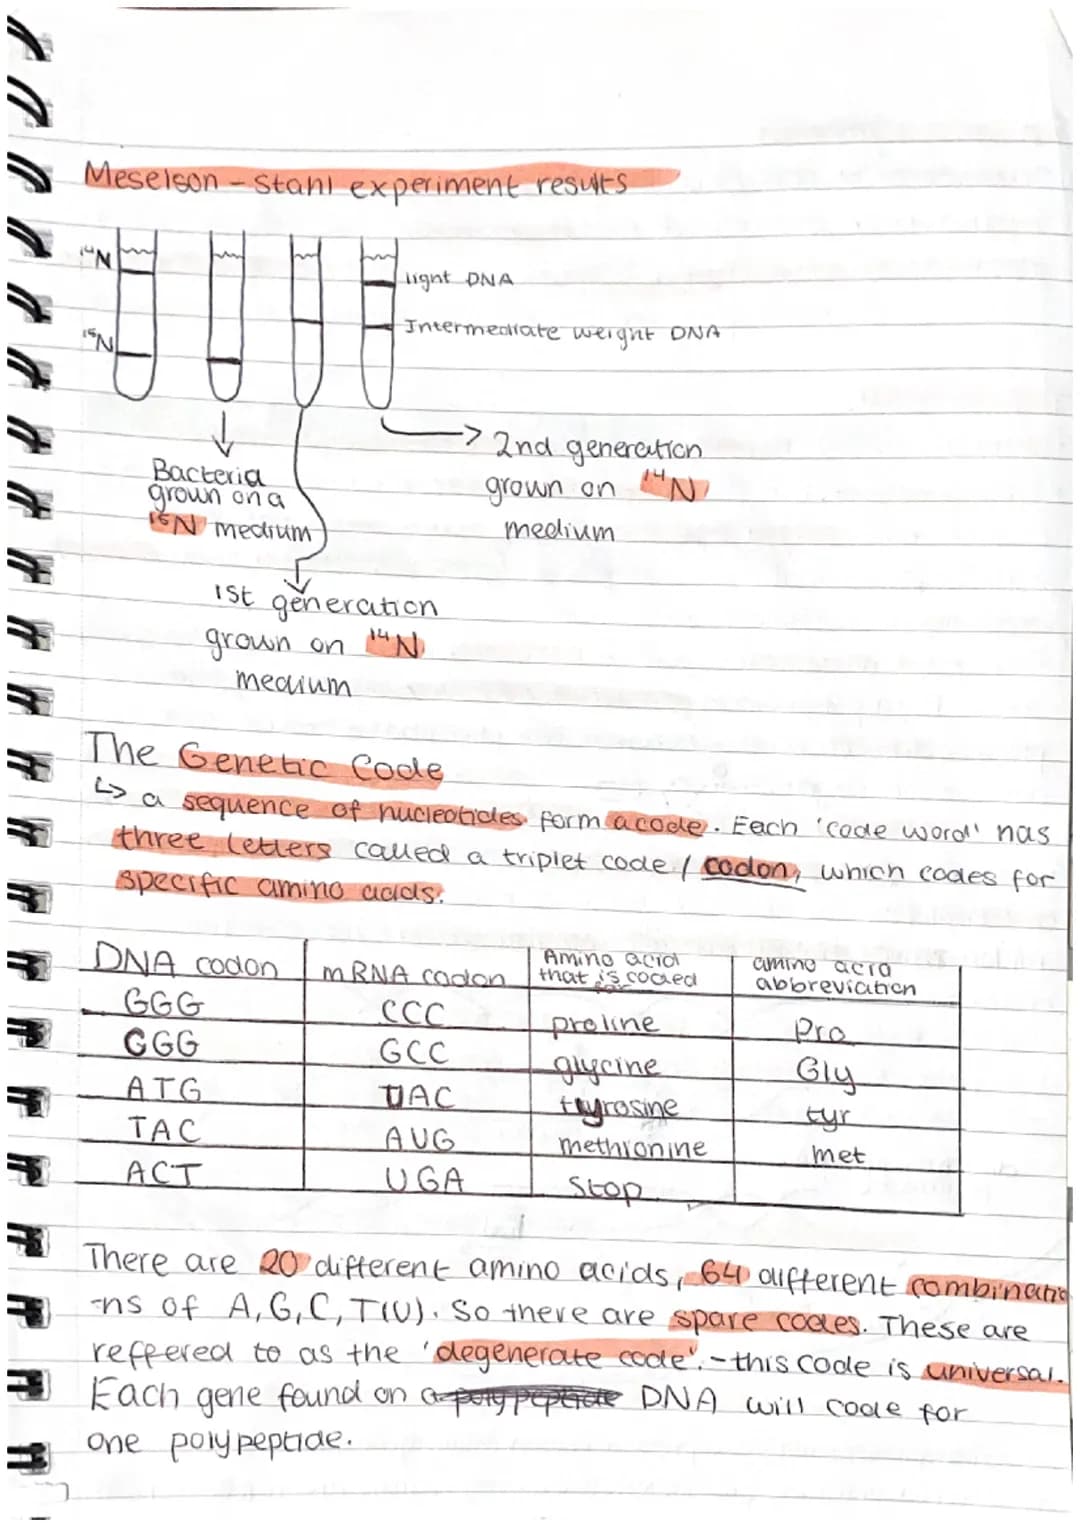 Meselson - Stahl experiment results
¹⁴N
light DNA
¹⁵N
Intermediate weight DNA
2nd generation
grown on ¹⁴N
medium
Bacteria
grown on a
¹⁵N medium
1st generation
grown on ¹⁴N
medium
The Genetic Code
↳ a sequence of nucleotides form a code. Each 'code word' has
three letters called a triplet code / codon, which codes for
specific amino acids.
DNA codon | mRNA codon | Amino acid that is coded for | amino acid abbreviation
GGG | CCC | proline | Pro
CGG | GCC | glycine | Gly
ATG | UAC | tyrosine | tyr
TAC | AUG | methionine | met
ACT | UGA | Stop
There are 20 different amino acids, 64 different combinatio
-ns of A, G, C, T(U). So there are spare codes. These are
reffered to as the 'degenerate code'. - this code is universal.
Each gene found on a polypeptide DNA will code for
one polypeptide.